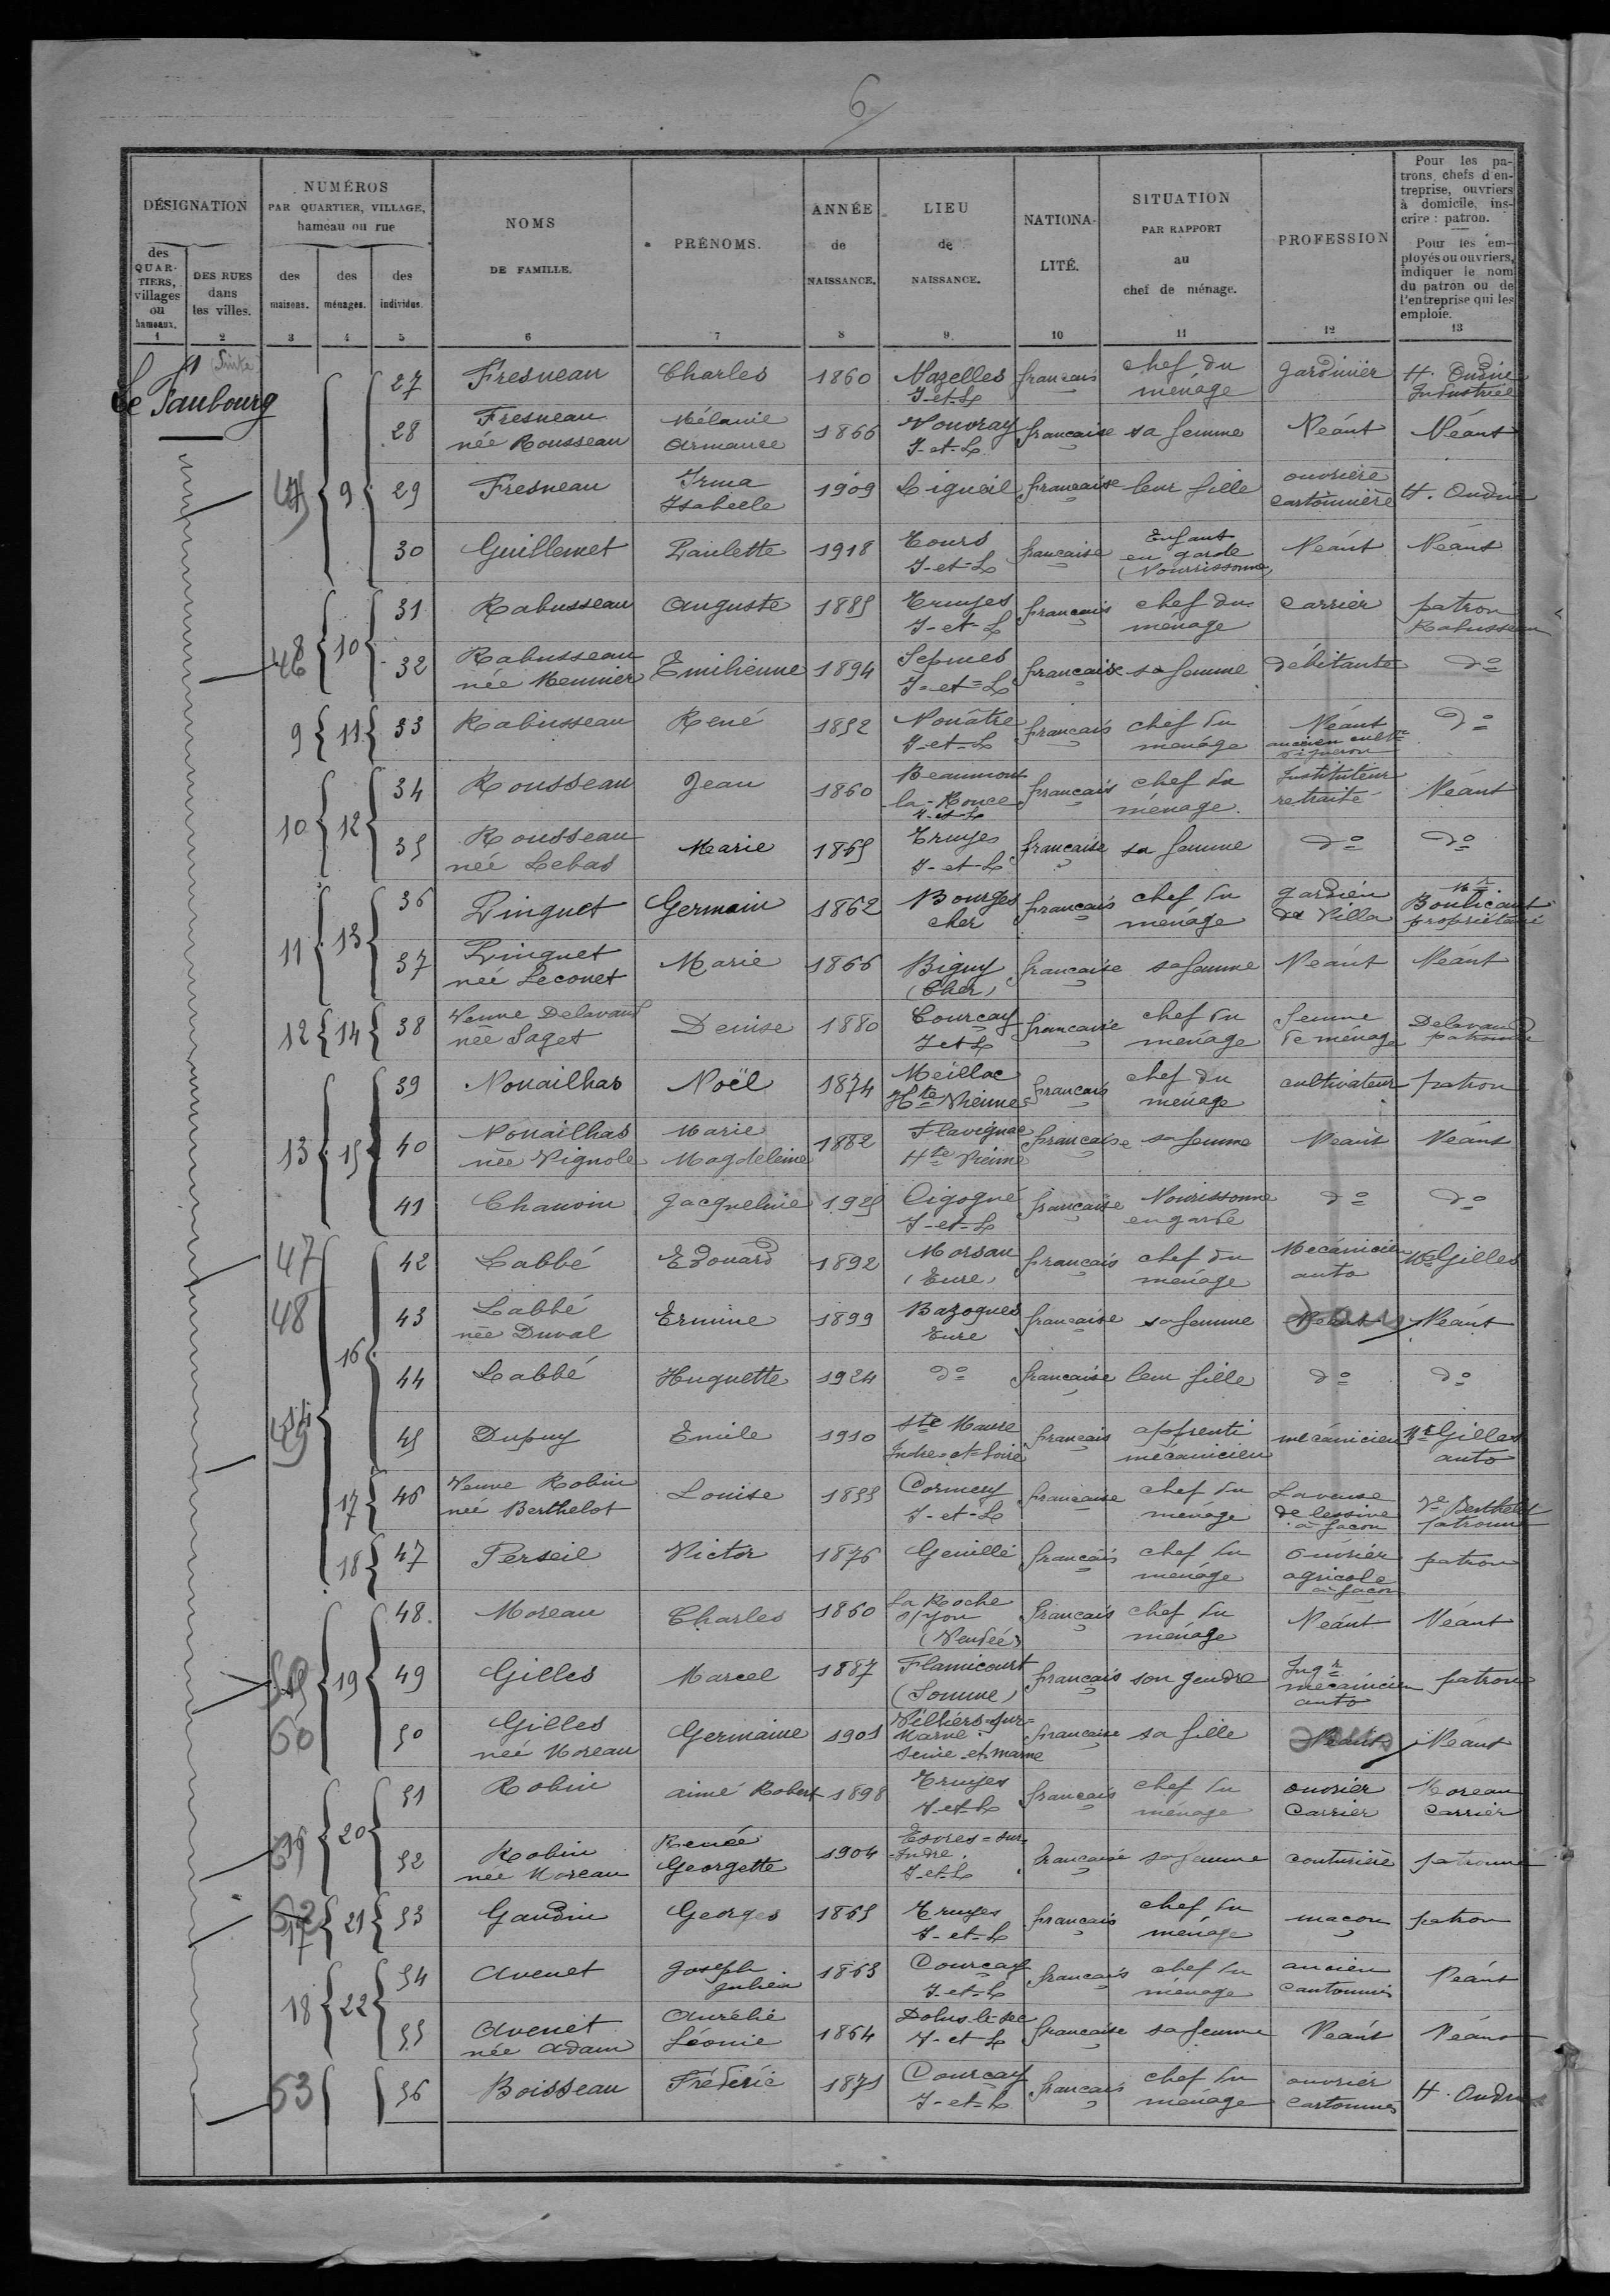 6
DÉSIGNATION
NUMÉROS
PAR QUARTIER, VILLAGE,
hameau ou rue
NOMS
DE FAMILLE.
PRÉNOMS.
ANNÉE
de
NAISSANCE.
LIEU
de
NAISSANCE.
NATIONA-
LITÉ.
SITUATION
PAR RAPPORT
au
chef de ménage.
PROFESSION
Pour les pa-
trons, chefs d'en-
treprise, ouvriers
à domicile, ins-
crire : patron.
Pour les em-
ployés ou ouvriers,
indiquer le nom
du patron ou de
l'entreprise qui les
emploie.
des
QUAR-
TIERS,
villages
ou
hameaux.
DES RUES
dans
les villes.
des
maisons.
des
ménages.
des
individus.
1 2 3 4 5 6 7 8 9 10 11 12 13
(Suite)
Le Faubourg
9 27 Fresneau Charles 1860 Nazelles I-et-L français chef du ménage jardinier H. Oudin Industriel
28 Fresneau née Rousseau Mélanie Armance 1866 Vouvray I-et-L française sa femme Néant Néant
29 Fresneau Irma Isabelle 1909 Ligueil française leur fille ouvrière cartonnière H. Oudin
30 Guillemet Paulette 1918 Tours I-et-L française Enfant en garde (Nourrissonne) Néant Néant
46 8 10 31 Rabusseau Auguste 1885 Truyes I-et-L français chef du ménage carrier patron Rabusseau
32 Rabusseau née Meunier Emilienne 1894 Sepmes I-et-L française sa femme débitante d°
9 11 33 Rabusseau René 1852 Nouâtre I-et-L français chef du ménage Néant ancien d°
10 12 34 Rousseau Jean 1860 Beaumont la-Ronce I-et-L français chef du ménage. Instituteur retraité Néant
35 Rousseau née Lebas Marie 1865 Truyes I-et-L française sa femme d° d°
11 13 36 Pinguet Germain 1862 Bourges cher français chef du ménage gardien de Villa Mr Boulicaut propriétaire
37 Pinguet née Leconet Marie 1866 Bigny (Cher) française sa femme Néant Néant
12 14 38 Veuve Delavaud née Saget Denise 1880 Courçay I et L française chef du ménage femme de ménage Delavaud patronne
13 15 39 Nouailhas Noël 1874 Meillac Hte Vienne français chef du ménage cultivateur patron
40 Nouailhas née Vignole Marie Magdeleine 1882 Flavignac Hte Vienne française sa femme Néant Néant
41 Chauvin Jacqueline 1925 Cigogné I-et-L française Nourissonne en garde d° d°
47 48 16 42 Labbé Edouard 1892 Morsan (Eure) français chef du ménage Mécanicien auto Mr Gilles
43 Labbé née Duval Ermine 1899 Bazoques Eure française sa femme Néant Néant
44 Labbé Huguette 1924 d° française leur fille d° d°
45 Dupuy Emile 1910 Ste Maure Indre-et-Loire français apprenti mécanicien mécanicien Mr Gilles auto
17 46 Veuve Robin née Berthelot Louise 1855 Cormery I-et-L française chef du ménage Laveuse de lessive à façon Ve Berthelot patronne
18 47 Perseil Victor 1876 Genillé français chef du ménage ouvrier agricole à façon patron
19 48 Moreau Charles 1860 La Roche s/yon (Vendée) français chef du ménage Néant Néant
49 Gilles Marcel 1887 Flamicourt (Somme) français son gendre Ingr mécanicien auto patron
50 50 Gilles née Moreau Germaine 1901 Villiers-sur-Marne Seine et marne française sa fille Néant Néant
20 51 Robin aimé Robert 1898 Truyes I-et-L français chef du ménage ouvrier Carrier Moreau Carrier
52 Robin née Moreau Renée Georgette 1904 Esvres-sur-Indre. I-et-L française sa femme couturière patronne
52 17 21 53 Gaudin Georges 1865 Truyes I-et-L français chef du ménage maçon patron
18 22 54 Avenet Joseph Julien 1863 Courçay I-et-L français chef du ménage ancien cantonnier Néant
55 Avenet née Adam Aurélie Léonie 1864 Dolus-le-sec I-et-L française sa femme Néant Néant
53 56 Boisseau Fréderic 1871 Courçay I-et-L français chef du ménage ouvrier cartonnier H. Oudin